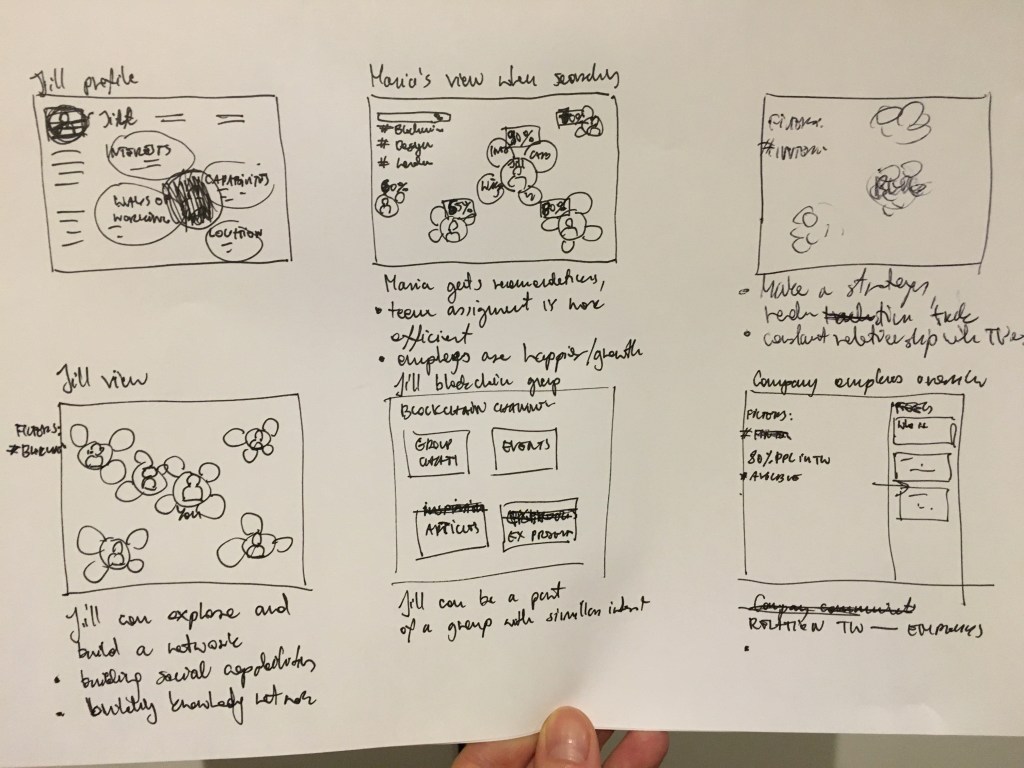 Jill profile
Jill
INTERESTS
CAPABILITIES
WAYS OF
WORKING
LOCATION
Maria's view when searching
# Blockchain
# Design
# London
90%
80%
60%
65%
80%
Maria gets
• team assignment is more
efficient
• employees are happier/growth
FILTERS:
#
• Make a strategy,
• constant relationship with TWes
Jill view
FILTERS:
You
Jill can explore and
build a network
• building social capabilities
• building knowledge network
Jill blockchain group
BLOCKCHAIN CHANNEL
GROUP
CHAT
EVENTS
ARTICLES
EX PROJECT
Jill can be a part
of a group with similar interest
Company employees overview
FILTERS:
80% PPL IN TW
# AVAILABLE
RELATION TW — EMPLOYEES